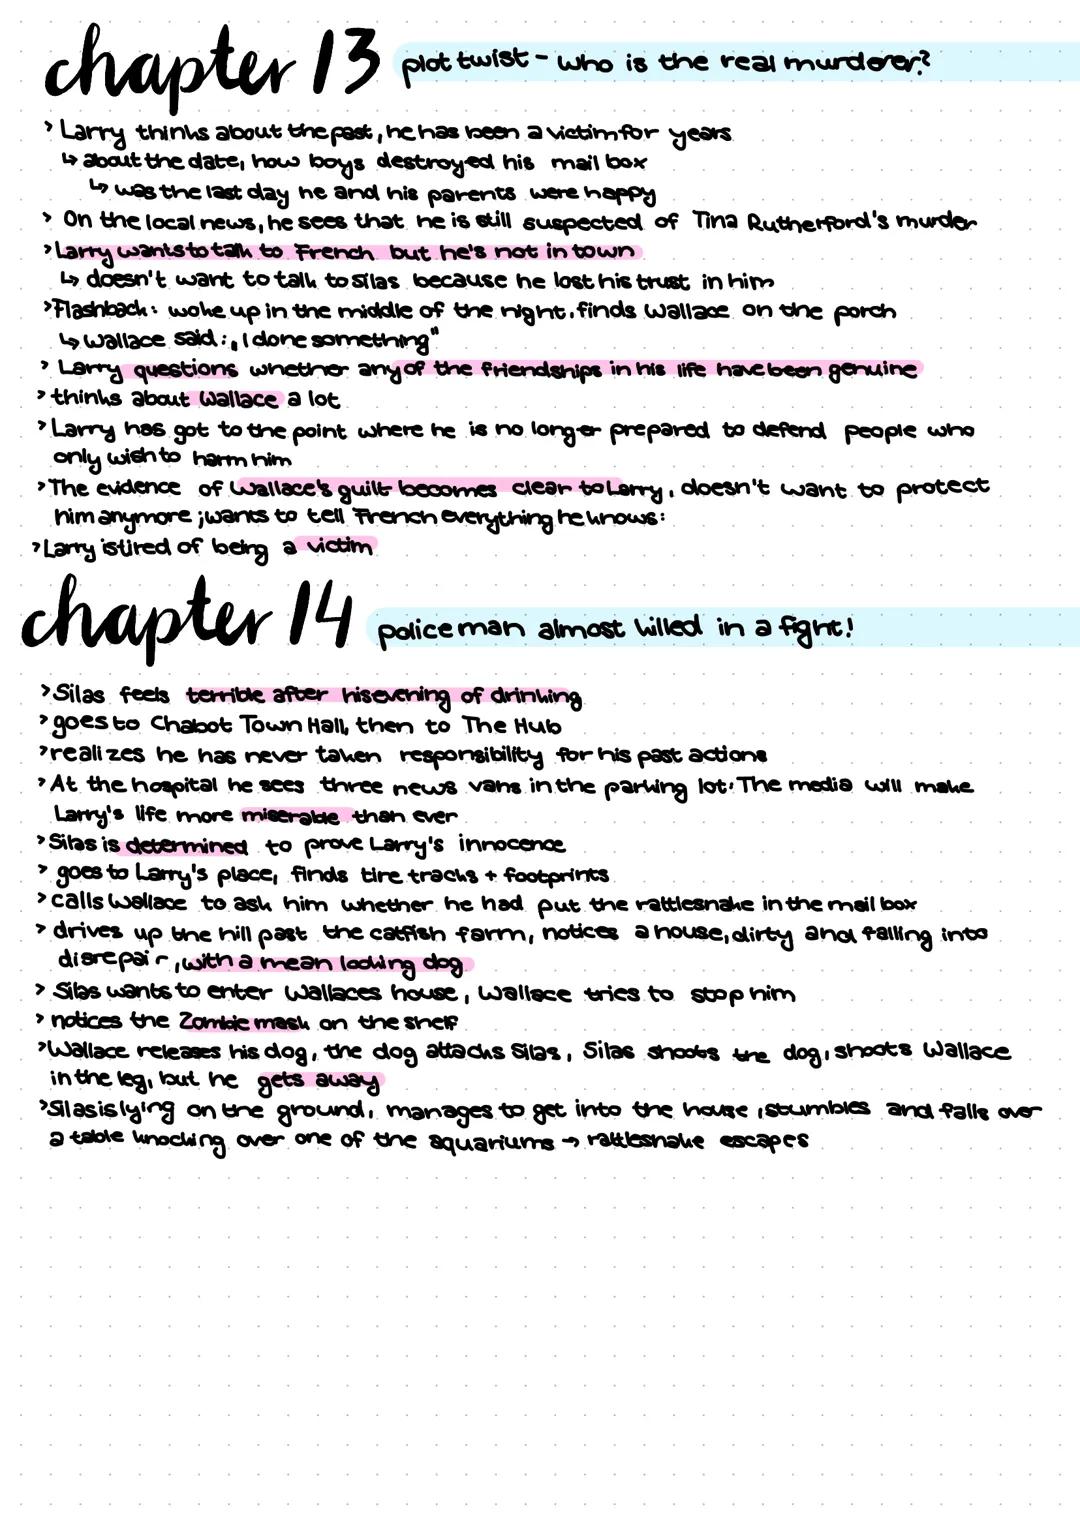 chapter 13 plot twist - who is the real murderer?
> Larry thinks about the past, he has been a victim for years
↳ about the date, how boys destroyed his mail box
↳ was the last day he and his parents were happy
> On the local news, he sees that he is still suspected of Tina Rutherford's murder
> Larry wants to talk to French but he's not in town
↳ doesn't want to talk to Silas because he lost his trust in him
> Flashback: woke up in the middle of the night, finds Wallace on the porch
↳ Wallace said: „I done something"
> Larry questions whether any of the friendships in his life have been genuine
> thinks about Wallace a lot
> Larry has got to the point where he is no longer prepared to defend people who
only wish to harm him
> The evidence of Wallace's guilt becomes clear to Larry, doesn't want to protect
him anymore; wants to tell French everything he knows:
> Larry is tired of being a victim
chapter 14 police man almost killed in a fight!
> Silas feels terrible after his evening of drinking
> goes to Chabot Town Hall, then to The Hub
> realizes he has never taken responsibility for his past actions
> At the hospital he sees three news vans in the parking lot: The media will make
Larry's life more miserable than ever
> Silas is determined to prove Larry's innocence
> goes to Larry's place, finds tire tracks + footprints
> calls Wallace to ask him whether he had put the rattlesnake in the mail box
> drives up the hill past the catfish farm, notices a house, dirty and falling into
disrepair, with a mean looking dog
> Silas wants to enter Wallaces house, Wallace tries to stop him
> notices the Zombie mask on the shelf
> Wallace releases his dog, the dog attacks Silas, Silas shoots the dog, shoots Wallace
in the leg, but he gets away
> Silas is lying on the ground, manages to get into the house, stumbles and falls over
a table knocking over one of the aquariums → rattlesnake escapes